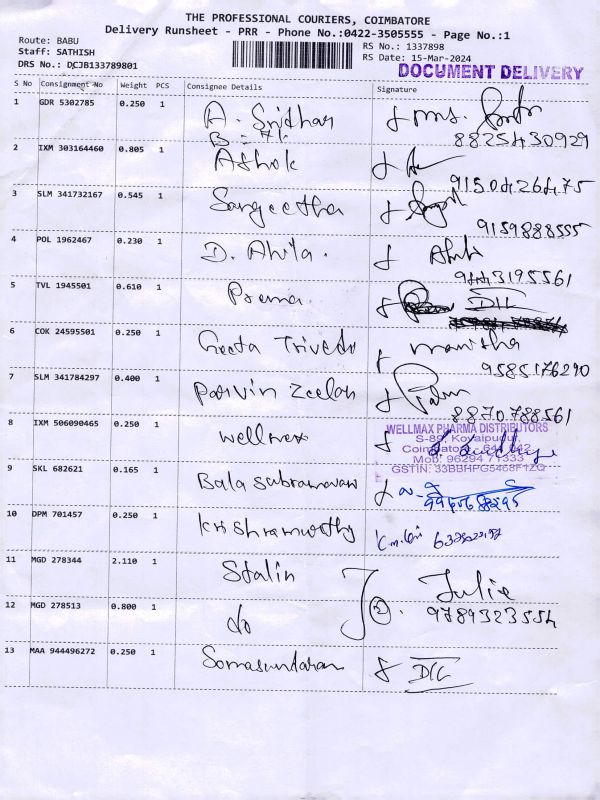 THE PROFESSIONAL COURIERS, COIMBATORE
Delivery Runsheet - PRR - Phone No.:0422-3505555 - Page No.:1
Route: BABU
Staff: SATHISH
DRS No.: DCJB133789801
RS No.: 1337898
RS Date: 15-Mar-2024
DOCUMENT DELIVERY
S No Consignment No Weight PCS Consignee Details Signature
1 GDR 5302785 0.250 1 A. Sridhar
8825430929
2 IXM 303164460 0.805 1 Ashok
9150426475
3 SLM 341732167 0.545 1 Sangeetha
9159888555
4 POL 1962467 0.230 1 D. Ahila.
9443195561
5 TVL 1945501 0.610 1 Prema
6 COK 24595501 0.250 1 Geeta Trivedi manisha
9585176290
7 SLM 341784297 0.400 1 Parvin Zeelan
8870788561
8 IXM 506090465 0.250 1 wellmax
WELLMAX PHARMA DISTRIBUTORS
Mob: 96294 71333
9 SKL 682621 0.165 1 Balasubramanian
10 DPM 701457 0.250 1 Krishnamurthy
11 MGD 278344 2.110 1 Stalin Julie
12 MGD 278513 0.800 1 do 2. 9789323554
13 MAA 944496272 0.250 1 Somasundaram